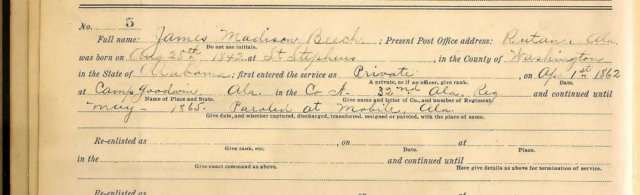 No. 5
Full name: James Madison Beech ; Present Post Office address: Rutan, Ala
Do not use initials.
was born on Aug 25th 1842, at St Stephens , in the County of Washington
in the State of Alabama ; first entered the service as Private , on Apr 1st 1862
A private, or if an officer, give rank. Date.
at Camp Goodwin Ala. in the Co A 32nd Ala. Reg , and continued until
Name of Place and State. Give name and letter of Co., and number of Regiment.
May - 1865 - Paroled at Mobile, Ala
Give date, and whether captured, discharged, transferred, resigned or paroled, with the place of same.
Re-enlisted as , on at
Give rank, etc. Date. Place.
in the and continued until
Give exact command as above. Here give details as above for termination of service.
Re-enlisted as , on at